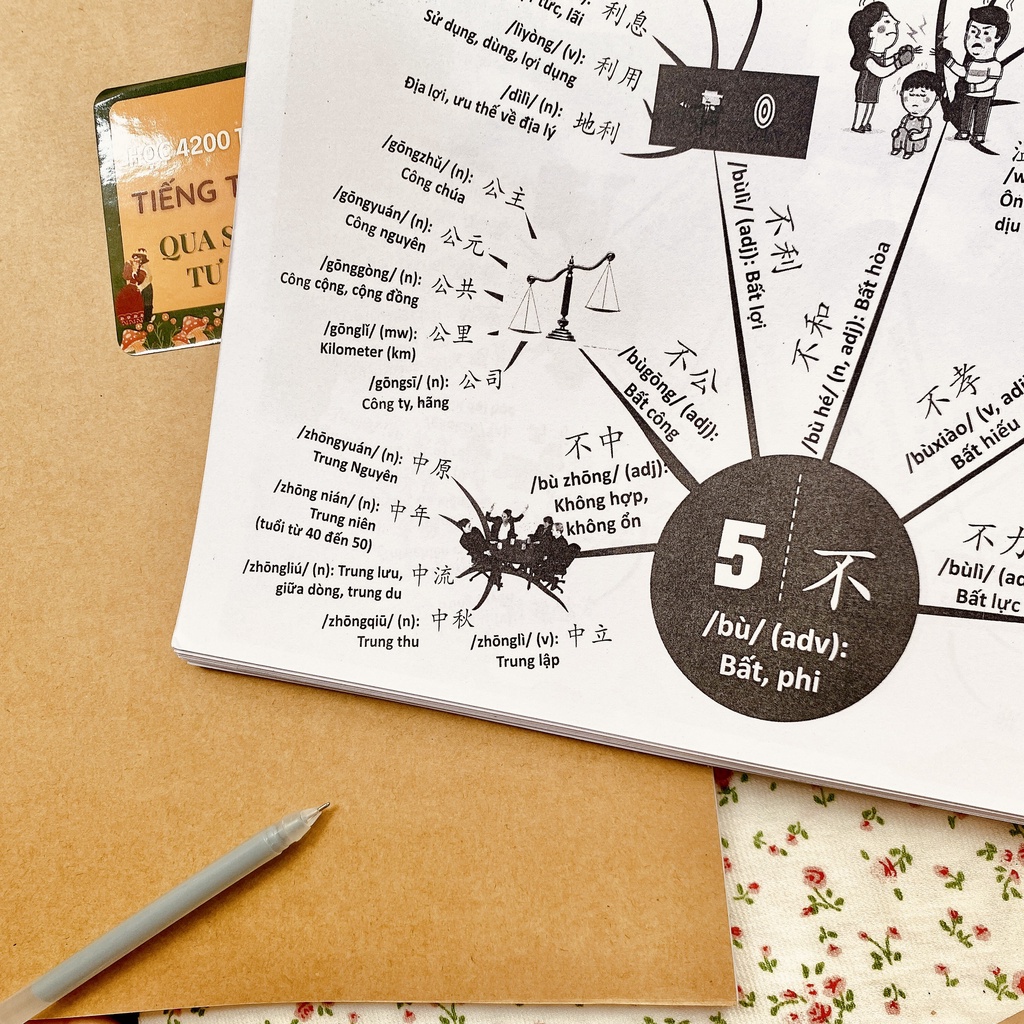 利息
tức, lãi
/lìyòng/ (v): 利用
Sử dụng, dùng, lợi dụng
/dìlì/ (n): 地利
Địa lợi, ưu thế về địa lý
HỌC 4200
TIẾNG
QUA
TƯ
/gōngzhǔ/ (n): 公主
Công chúa
/gōngyuán/ (n): 公元
Công nguyên
/gōnggòng/ (n): 公共
Công cộng, cộng đồng
/gōnglǐ/ (mw): 公里
Kilometer (km)
/gōngsī/ (n): 公司
Công ty, hãng
/zhōngyuán/ (n): 中原
Trung Nguyên
/zhōng nián/ (n): 中年
Trung niên
(tuổi từ 40 đến 50)
/zhōngliú/ (n): Trung lưu, 中流
giữa dòng, trung du
/zhōngqiū/ (n): 中秋
Trung thu
/zhōnglì/ (v): 中立
Trung lập
不中
/bù zhōng/ (adj):
Không hợp,
không ổn
不公
/bùgōng/ (adj):
Bất công
不利
/bùlì/ (adj): Bất lợi
不和
/bù hé/ (n, adj): Bất hòa
不孝
/bùxiào/ (v, adj
Bất hiếu
不力
/bùlì/ (ad
Bất lực
Ôn
dịu
5 不
/bù/ (adv):
Bất, phi